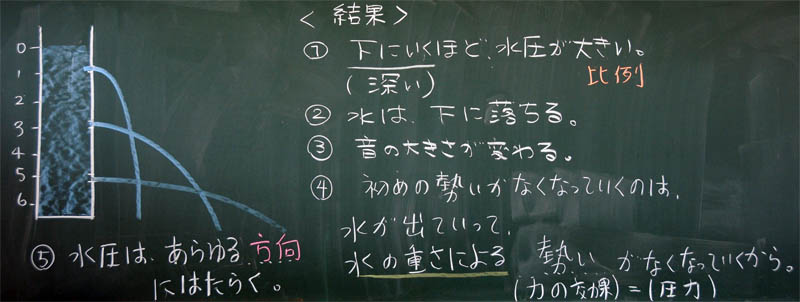 <結果>
① 下にいくほど、水圧が大きい。
(深い)
比例
② 水は、下に落ちる。
③ 音の大きさが変わる。
④ 初めの勢いがなくなっていくのは、
水が出ていって、
水の重さによる 勢いがなくなっていくから。
(力の効果)=(圧力)
0
1
2
3
4
5
6
⑤ 水圧は、あらゆる方向
にはたらく。